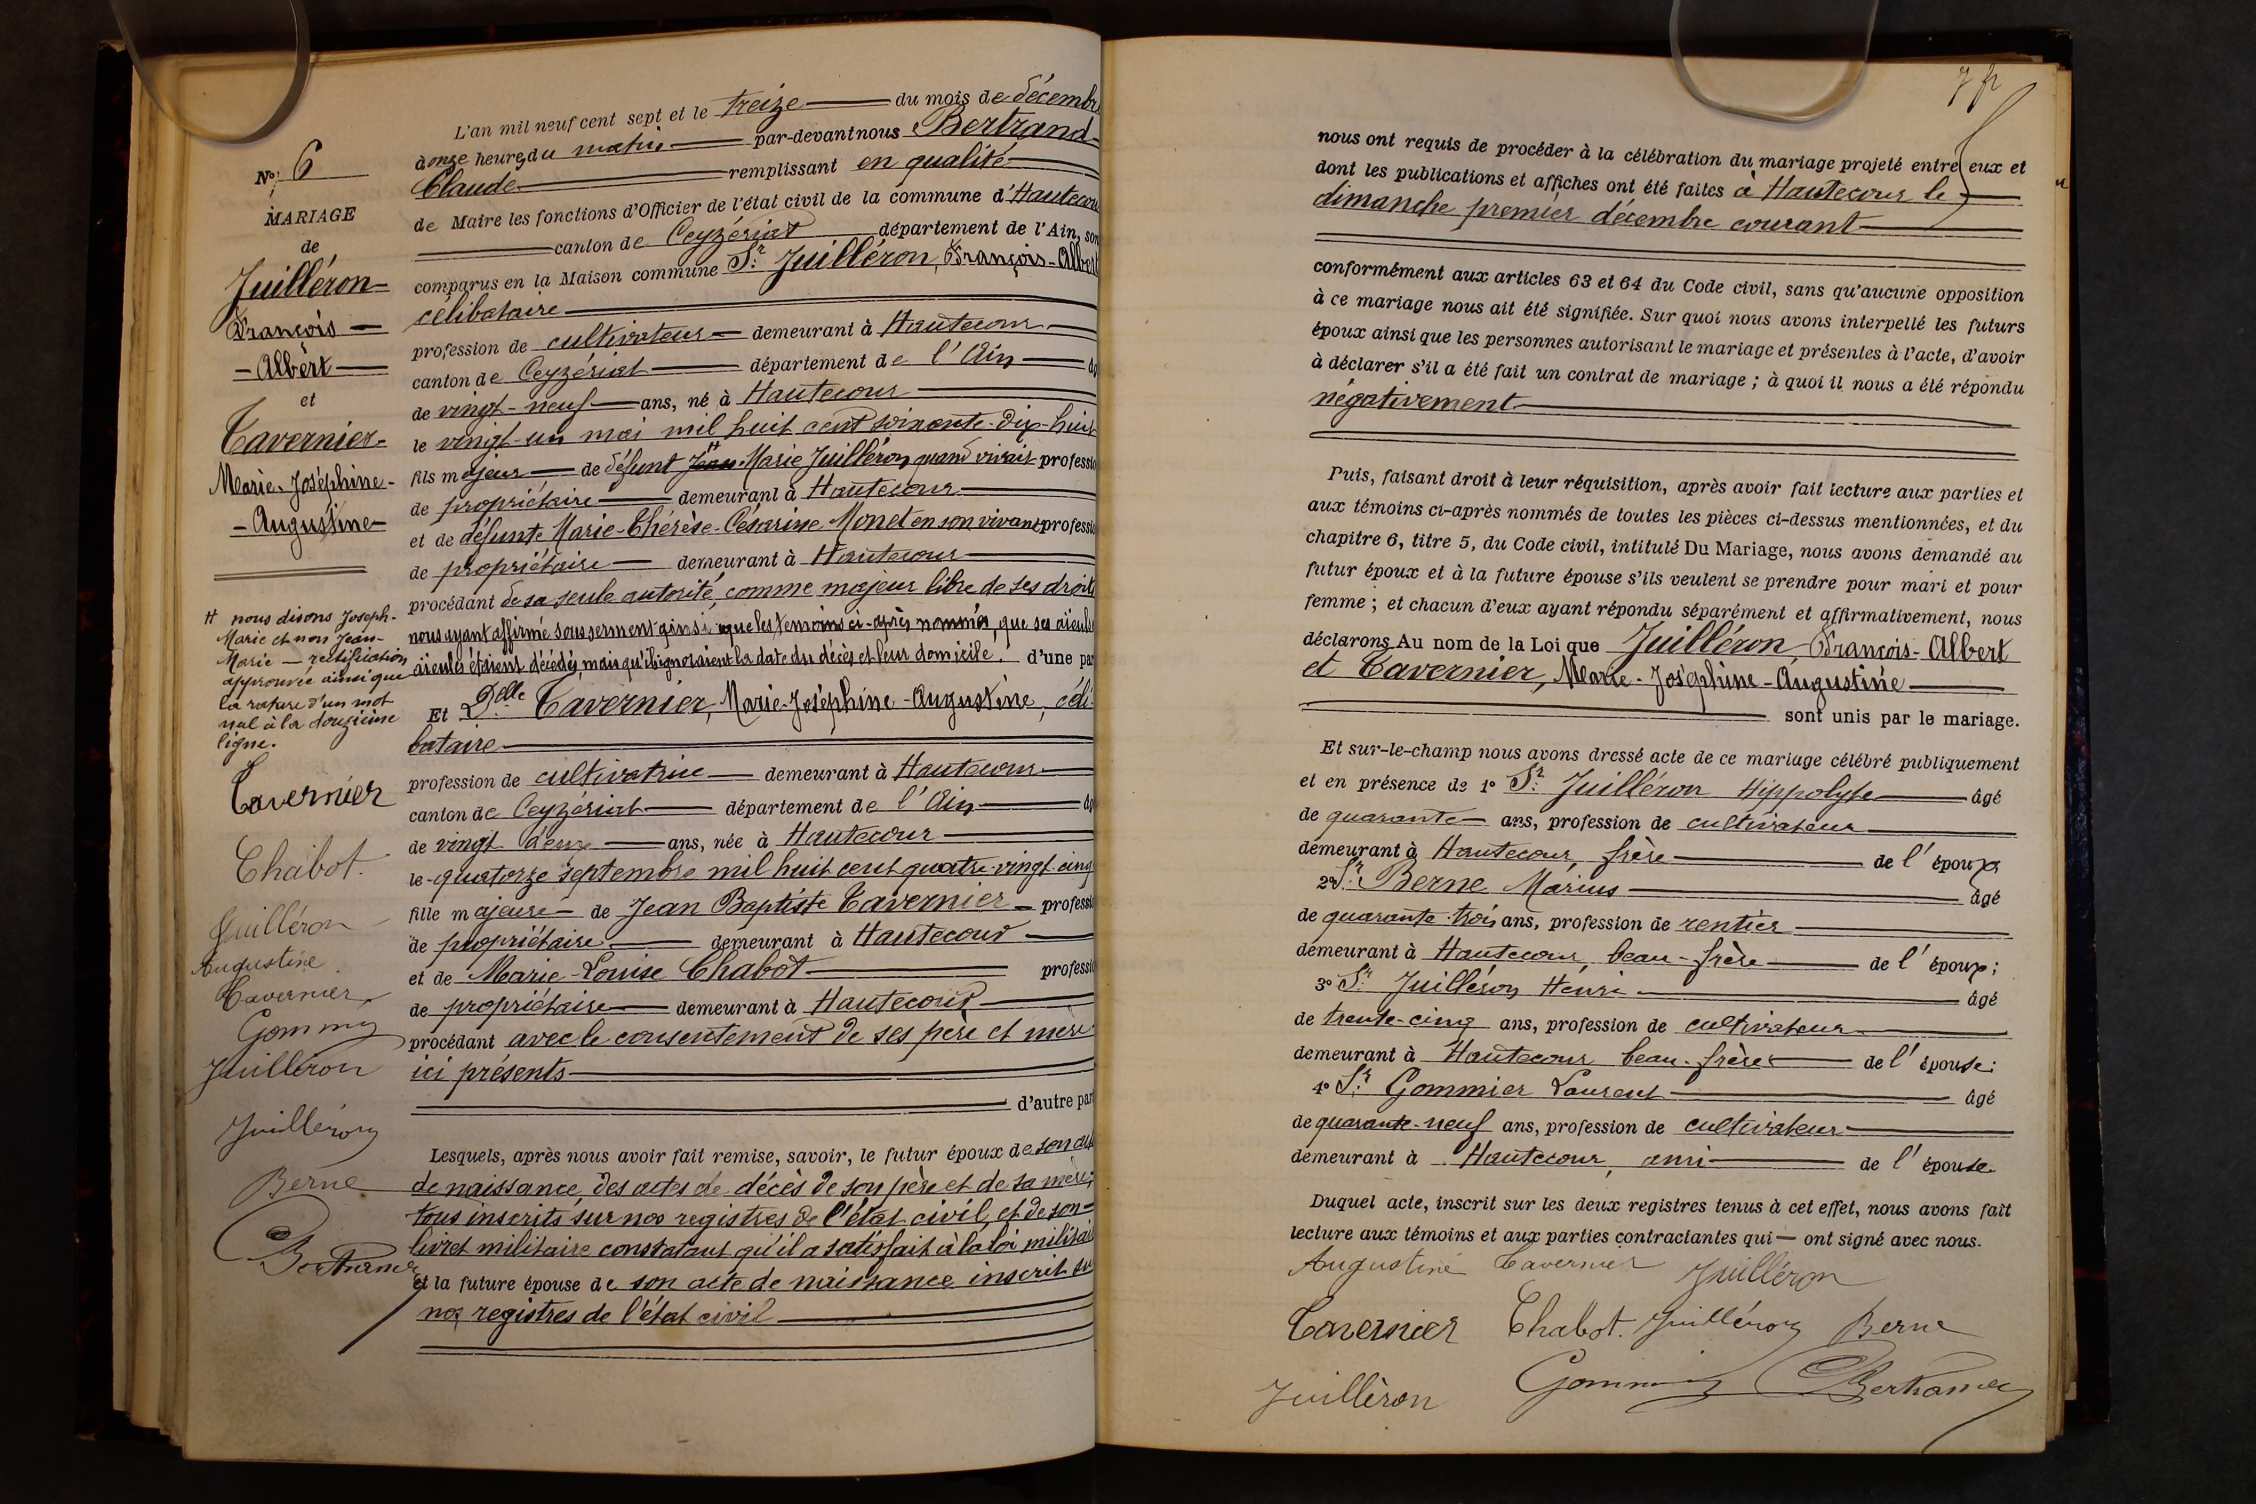 N° 6
MARIAGE
de
Juilléron
François
Albert
et
Tavernier
Marie-Joséphine
Augustine
# nous disons Joseph-
Marie et non Jean-
Marie — rectification
approuvée ainsi que
la rature d'un mot
nul à la douzième
ligne.
Tavernier
Chabot.
Juilléron
Augustine
Tavernier
Gommier
Juilléron
Juilléron
Berne
Bertrand
L'an mil neuf cent sept et le treize du mois de décembre
à onze heures du matin par-devant nous Bertrand
Claude remplissant en qualité
de Maire les fonctions d'Officier de l'état civil de la commune d'Hautecour
canton de Ceyzériat département de l'Ain, son
comparus en la Maison commune Sr. Juilléron, François-Albert
célibataire
profession de cultivateur demeurant à Hautecour
canton de Ceyzériat département de l'Ain âg
de vingt-neuf ans, né à Hautecour
le vingt-un mai mil huit cent soixante-dix-huit
fils majeur de défunt Jean # Marie Juilléron quand vivait professio
de propriétaire demeurant à Hautecour
et de défunte Marie-Thérèse-Césarine Monet en son vivant professio
de propriétaire demeurant à Hautecour
procédant de sa seule autorité, comme majeur libre de ses droits
nous ayant affirmé sous serment ainsi que les témoins ci-après nommés, que ses aïeuls
aïeules étaient décédés, mais qu'ils ignoraient la date du décès et leur domicile. d'une par
Et Delle Tavernier, Marie-Joséphine-Augustine, céli-
bataire
profession de cultivatrice demeurant à Hautecour
canton de Ceyzériat département de l'Ain âg
de vingt deux ans, née à Hautecour
le quatorze septembre mil huit cent quatre-vingt-cinq
fille majeure de Jean Baptiste Tavernier professio
de propriétaire demeurant à Hautecour
et de Marie-Louise Chabot professio
de propriétaire demeurant à Hautecour
procédant avec le consentement de ses père et mère
ici présents
d'autre part
Lesquels, après nous avoir fait remise, savoir, le futur époux de son acte
de naissance, des actes de décès de son père et de sa mère;
tous inscrits sur nos registres de l'état civil, et de son
livret militaire constatant qu'il a satisfait à la loi militaire
et la future épouse de son acte de naissance inscrit sur
nos registres de l'état civil
nous ont requis de procéder à la célébration du mariage projeté entre eux et
dont les publications et affiches ont été faites à Hautecour le
dimanche premier décembre courant
conformément aux articles 63 et 64 du Code civil, sans qu'aucune opposition
à ce mariage nous ait été signifiée. Sur quoi nous avons interpellé les futurs
époux ainsi que les personnes autorisant le mariage et présentes à l'acte, d'avoir
à déclarer s'il a été fait un contrat de mariage ; à quoi il nous a été répondu
négativement
Puis, faisant droit à leur réquisition, après avoir fait lecture aux parties et
aux témoins ci-après nommés de toutes les pièces ci-dessus mentionnées, et du
chapitre 6, titre 5, du Code civil, intitulé Du Mariage, nous avons demandé au
futur époux et à la future épouse s'ils veulent se prendre pour mari et pour
femme ; et chacun d'eux ayant répondu séparément et affirmativement, nous
déclarons Au nom de la Loi que Juilléron, François-Albert
et Tavernier, Marie-Joséphine-Augustine
sont unis par le mariage.
Et sur-le-champ nous avons dressé acte de ce mariage célébré publiquement
et en présence de 1° Sr. Juilléron Hippolyte âgé
de quarante ans, profession de cultivateur
demeurant à Hautecour, frère de l'époux
2° Sr. Berne Marius âgé
de quarante-trois ans, profession de rentier
demeurant à Hautecour, beau-frère de l'époux;
3° Sr. Juilléron Henri âgé
de trente-cinq ans, profession de cultivateur
demeurant à Hautecour beau-frère de l'épouse;
4° Sr. Gommier Laurent âgé
de quarante-neuf ans, profession de cultivateur
demeurant à Hautecour, ami de l'épouse
Duquel acte, inscrit sur les deux registres tenus à cet effet, nous avons fait
lecture aux témoins et aux parties contractantes qui ont signé avec nous.
Augustine Tavernier Juilléron
Tavernier Chabot. Juilléron Berne
Juilléron Gommier Bertrand